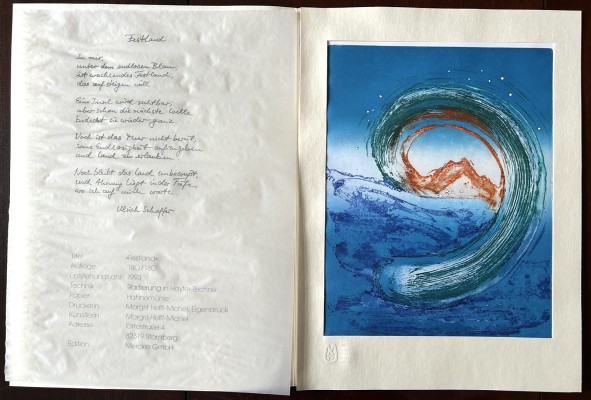 Festland
In mir,
unter dem endlosen Blau,
ist wachsendes Festland,
das aufsteigen will
Eine Insel wird sichtbar,
aber schon die nächste Welle
bedeckt sie wieder ganz
Noch ist das Meer nicht bereit,
seine Endlosigkeit aufzugeben
und Land zu erlauben
Noch bleibt das Land unbesiegt,
und Ahnung liegt in der Tiefe,
wo ich auf mich warte
Ulrich Schaffer
Titel »Festland«
Auflage 180/180
Entstehungsjahr 1993
Technik Radierung in Hayter-Technik
Papier Hahnemühle
Druckerin Margret Hofft-Michel, Eigendruck
Künstlerin Margret Hofft-Michel
Adresse Ottostraße 4
82319 Starnberg
Edition GmbH